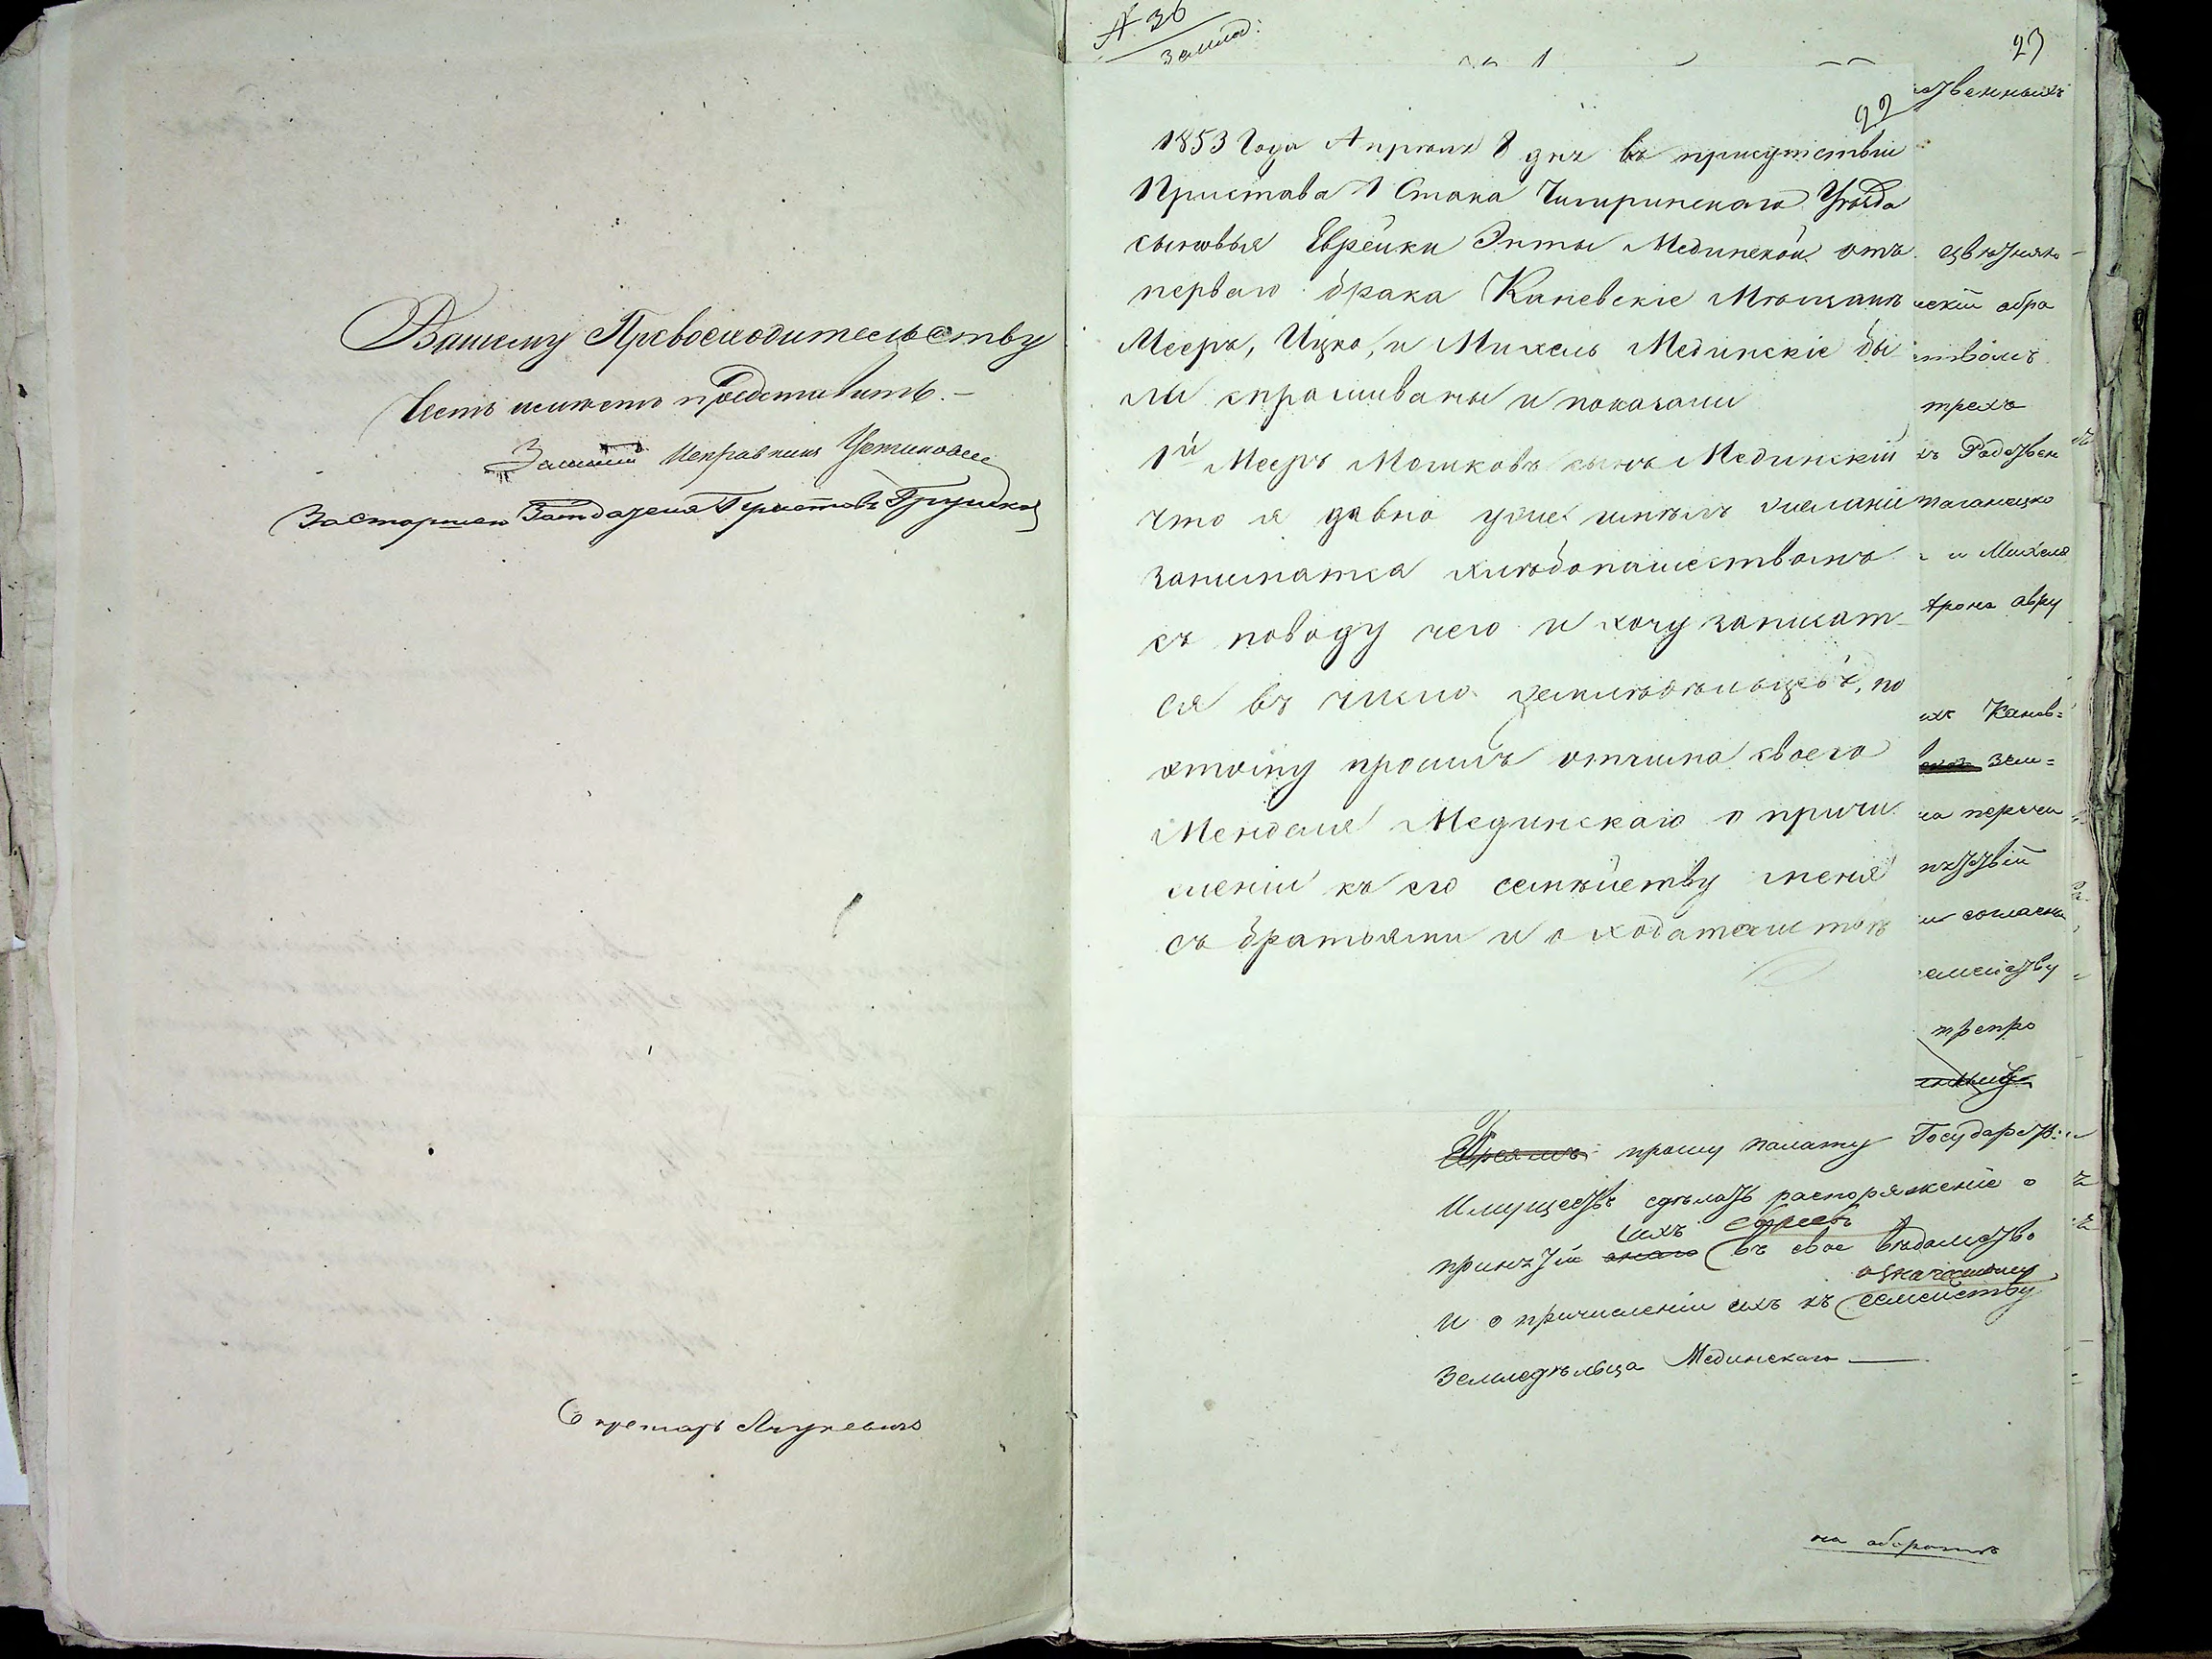 Вашему Превосходительству
Честь имѣетъ представить.-
Исправникъ
За Старшаго Засѣдателя Приставъ
Секретарь
№ 36
23
22
1853 Года Апрѣля 8 дня въ присутствіи
Пристава 1 Стана Чигиринскаго Уѣзда
сыновья Еврейки Энты Мединской отъ
перваго брака Каневскіе Мѣщане
Мееръ, Ицко, и Михель Мединскіе бы
ли спрошиваны и показали
1й Мееръ Мошковъ сынъ Мединскій
что я давно уже имѣлъ желаніе
заниматся хлѣбопашествомъ
съ поводу чего и хочу записат
ся въ число земледѣльцевъ, по
этому просилъ отчима своего
Менделя Мединскаго о причи
сленіи къ его семѣйству меня
съ братьями и о ходатайствѣ
ственныхъ
скій обра
ствомъ
трехъ
и Михеля
Арона
Канев=
зем=
на перечи
согласны
семейству
препро
прошу палату Государств:
Имуществъ сдѣлать распоряженіе о
сихъ евреевъ
принятіи онаго въ свое вѣдомство
означенному
и о причисленіи ихъ къ семейству
Земледѣльца Мединскаго —
на оборотѣ